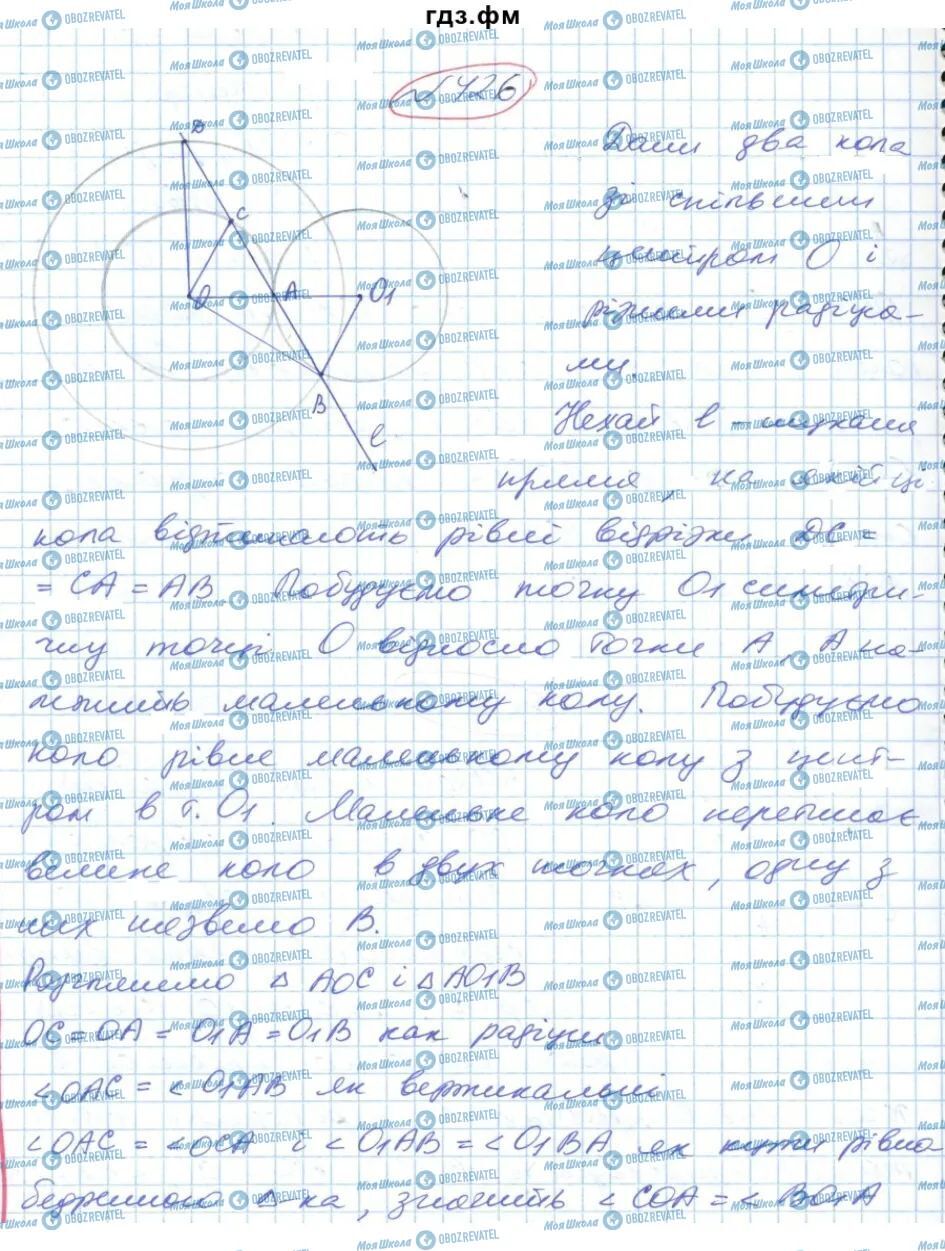 гдз.фм
№426
D
C
O
A
O1
B
l
Дани два кола
зі спільним
центром O і
різними радіуса-
ми.
Нехай l - шукана
пряма, на якій ці
кола відтинають рівні відрізки DC =
= CA = AB Побудуємо точку O1 симетри-
чну точці O відносно точки A. A на-
лежить маленькому колу. Побудуємо
коло рівне маленькому колу з цент-
ром в т. O1. Маленьке коло перетинає
велике коло в двух точках, одну з
них назвемо B.
Розглянемо △ AOC і △ AO1B
OC = OA = O1A = O1B как радіуси
<OAC = <O1AB як вертикальні
<OAC = <OCA і <O1AB = <O1BA як кути рівно
бедренного △-ка, значить <COA = <BO1A